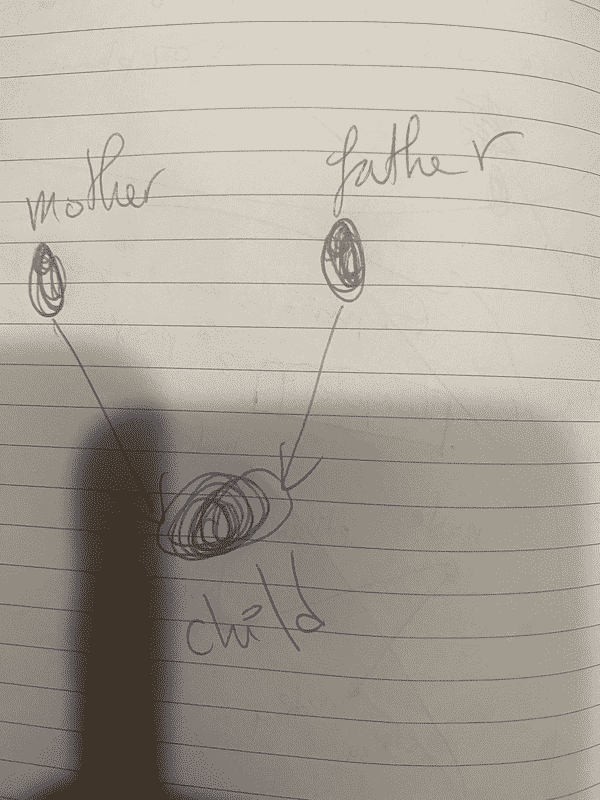 mother father
child